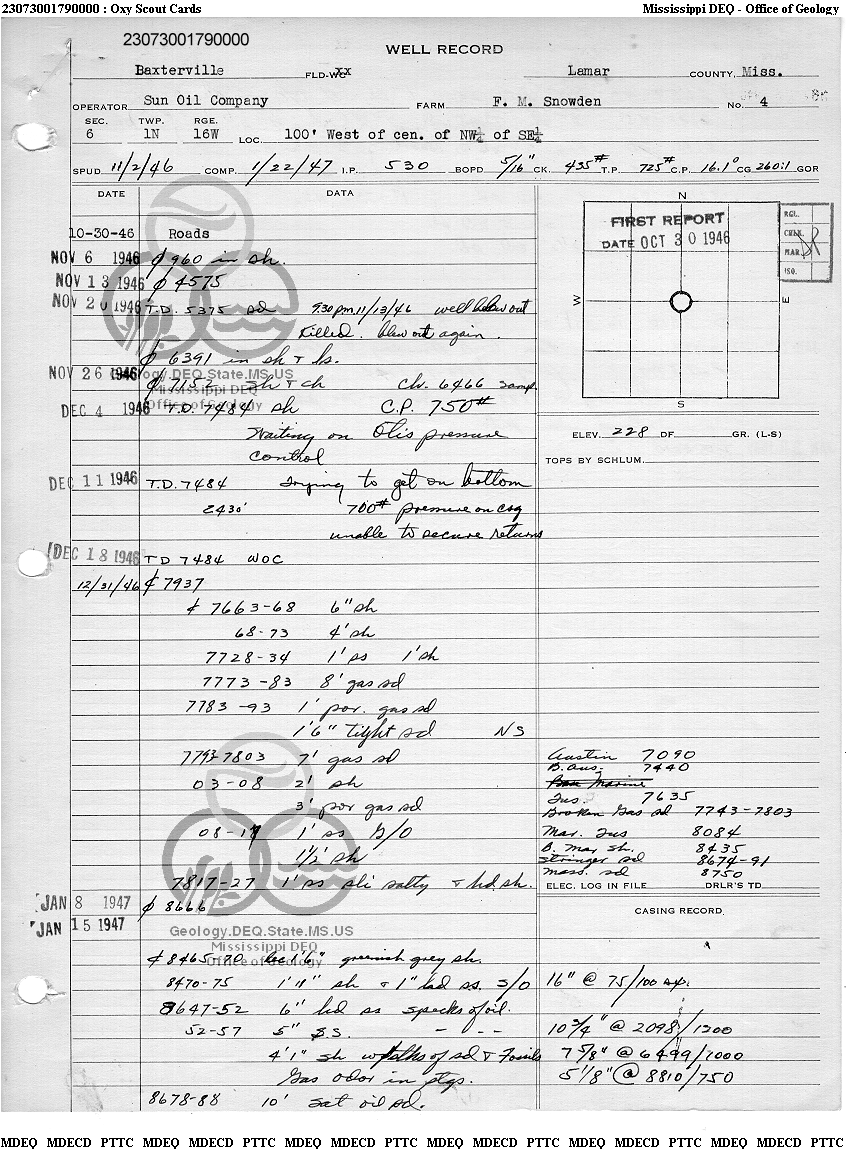 23073001790000 : Oxy Scout Cards Mississippi DEQ - Office of Geology
23073001790000
WELL RECORD
Baxterville FLD-WC Lamar COUNTY, Miss.
OPERATOR Sun Oil Company FARM F. M. Snowden No. 4
SEC. TWP. RGE.
6 1N 16W LOC. 100' West of cen. of NW¼ of SE¼
SPUD 11/2/46 COMP. 1/22/47 I.P. 530 BOPD 5/16" CK. 435# T.P. 725# C.P. 16.1° CG 260:1 GOR
DATE DATA
N
W
E
S
FIRST REPORT
DATE OCT 30 1946
RGL.
CHK.
MAR.
ISO.
10-30-46 Roads
NOV 6 1946 ₵ 960 in sh.
NOV 13 1946 ₵ 4575
NOV 20 1946 T.D. 5375 sd 9:30 pm 11/13/46 well blew out
Killed. blew out again.
₵ 6391 in sh + ls.
NOV 26 1946 ₵ 7152 sh + ch Ch. 6466 samp.
DEC 4 1946 T.D. 7484 sh C.P. 750#
Waiting on Otis pressure
control
DEC 11 1946 T.D. 7484 Trying to get on bottom
2430' 700# pressure on csg
unable to secure returns
DEC 18 1946 TD 7484 WOC
12/31/46 ₵ 7937
₵ 7663-68 6" sh
68-73 4' sh
7728-34 1' ss 1' sh
7773-83 8' gas sd
7783-93 1' por. gas sd
1'6" Tight sd NS
7793-7803 7' gas sd
03-08 2' sh
3' por gas sd
08-17 1' ss S/O
1½' sh
7817-27 1' ss sli salty + hd. sh.
JAN 8 1947 ₵ 8666
JAN 15 1947
₵ 8465-70 rec 1'6" greenish grey sh.
8470-75 1'11" sh + 1" hd ss. S/O
8647-52 6" hd ss specks of oil.
52-57 5" S.S. - - -
4'1" sh w/ of sd + Fossils
Gas odor in ptgs.
8678-88 10' sat oil sd.
ELEV. 228 DF GR. (L-S)
TOPS BY SCHLUM.
Austin 7090
B. Aus. 7440
Bas Marine
Tus. 7635
Broken Gas sd 7743-7803
Mar. Tus 8084
B. Mar sh. 8435
Stringer sd 8674-91
Mass. sd 8750
ELEC. LOG IN FILE DRLR'S TD
CASING RECORD
16" @ 75/100 sx.
10 3/4" @ 2098/1200
7 5/8" @ 6499/1000
5 1/8" @ 8810/750
Geology.DEQ.State.MS.US
Mississippi DEQ
Office of Geology
Geology.DEQ.State.MS.US
Mississippi DEQ
Office of Geology
MDEQ MDECD PTTC MDEQ MDECD PTTC MDEQ MDECD PTTC MDEQ MDECD PTTC MDEQ MDECD PTTC MDEQ MDECD PTTC